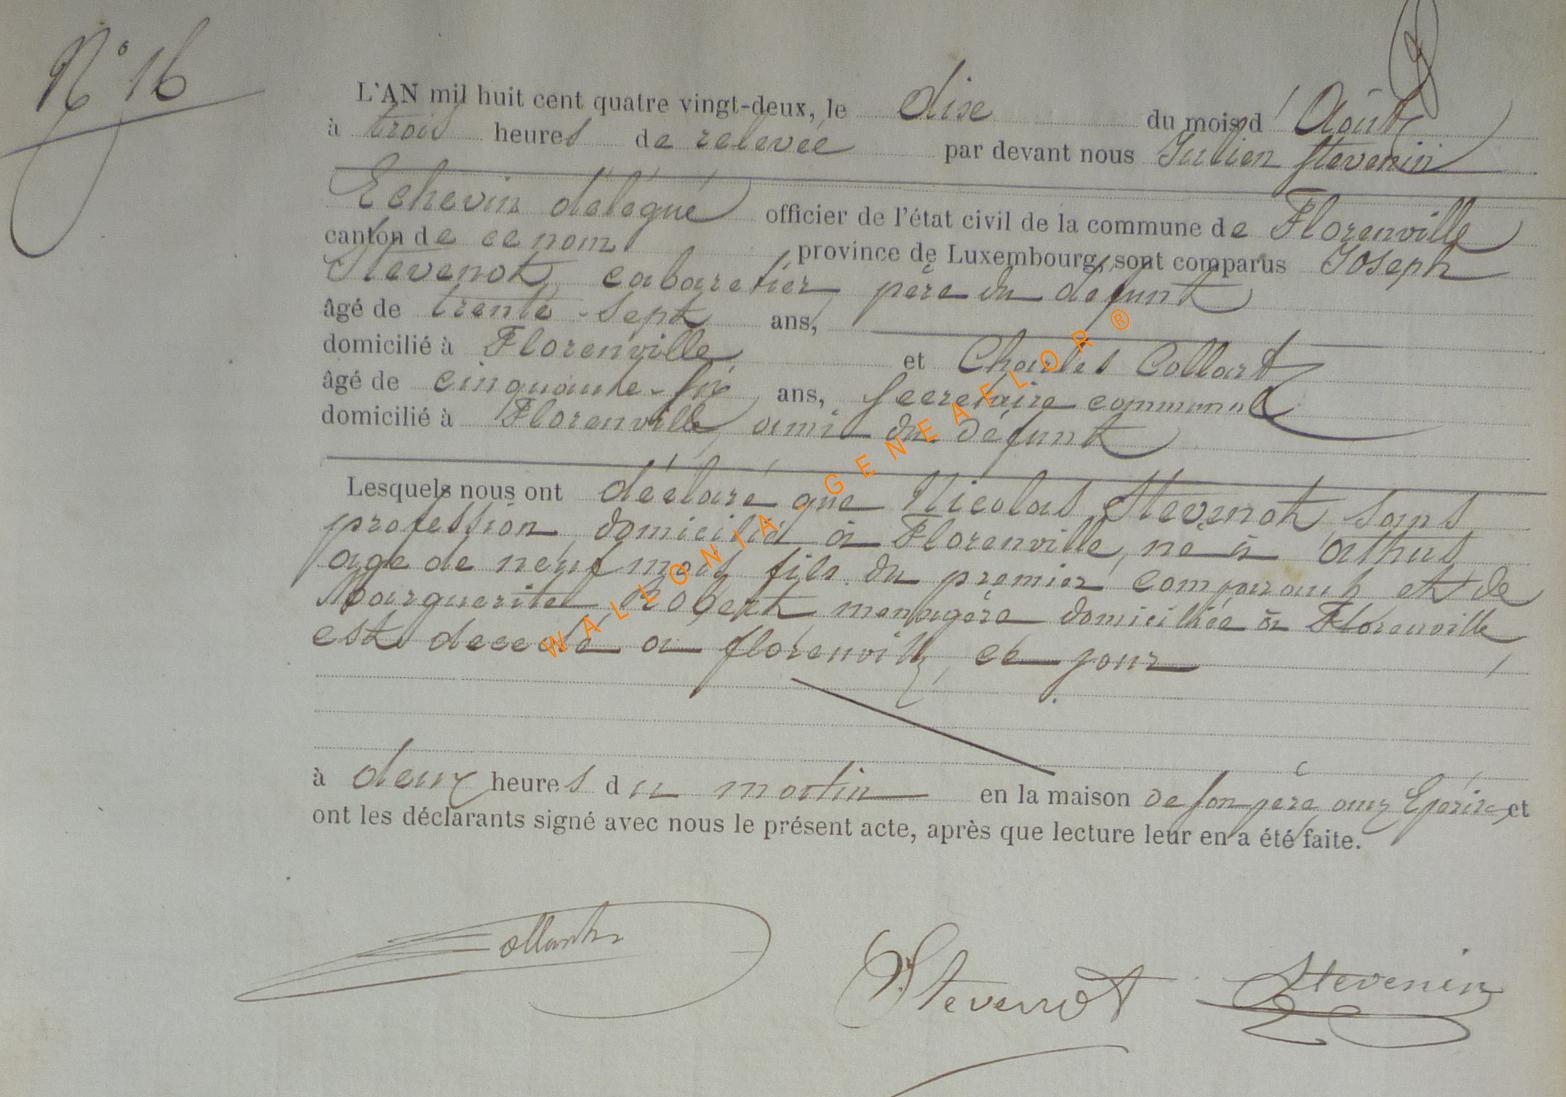 N° 16
L'AN mil huit cent quatre vingt-deux, le dixe du mois d' Août
à trois heures de relevée par devant nous Julien Stevenin
Echevin délégué officier de l'état civil de la commune de Florenville
canton de ce nom province de Luxembourg, sont comparus Joseph
Stevenot, cabaretier, père du défunt
âgé de trente-sept ans,
domicilié à Florenville et Charles Collart
âgé de cinquante-six ans, Secrétaire communal
domicilié à Florenville, ami du défunt
Lesquels nous ont déclaré que Nicolas Stevenot, sans
profession domicilié à Florenville, né à athus,
age de neuf mois fils du premier comparant et de
Marguerite Robert menagère domiciliée à Florenville
est decedé a florenville, ce jour
à deux heures du matin en la maison de son père aux et
ont les déclarants signé avec nous le présent acte, après que lecture leur en a été faite.
Collart Stevenot Stevenin
WALLONIA - GENEAFLOR ®